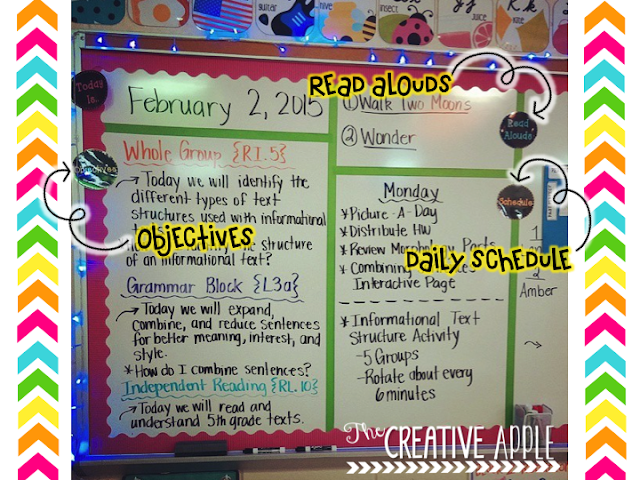 insect
juice
kite
K k
Today Is:
February 2, 2015
READ ALOUDS
① Walk Two Moons
② Wonder
Read Alouds
Whole Group {RI.5}
Objectives
→ Today we will identify the
different types of text
structures used with informational
OBJECTIVES
the structure
of an informational text?
Grammar Block {L3a}
→ Today we will expand,
combine, and reduce sentences
for better meaning, interest, and
style.
* How do I combine sentences?
Independent Reading {RL.10}
→ Today we will read and
understand 5th grade texts.
Schedule
Monday
* Picture-A-Day
* Distribute HW
* Review Morphology Parts
* Combining
Interactive Page
DAILY SCHEDULE
* Informational Text
Structure Activity
-5 Groups
-Rotate about every
6 minutes
1
2
Amber
→
The CREATIVE APPLE